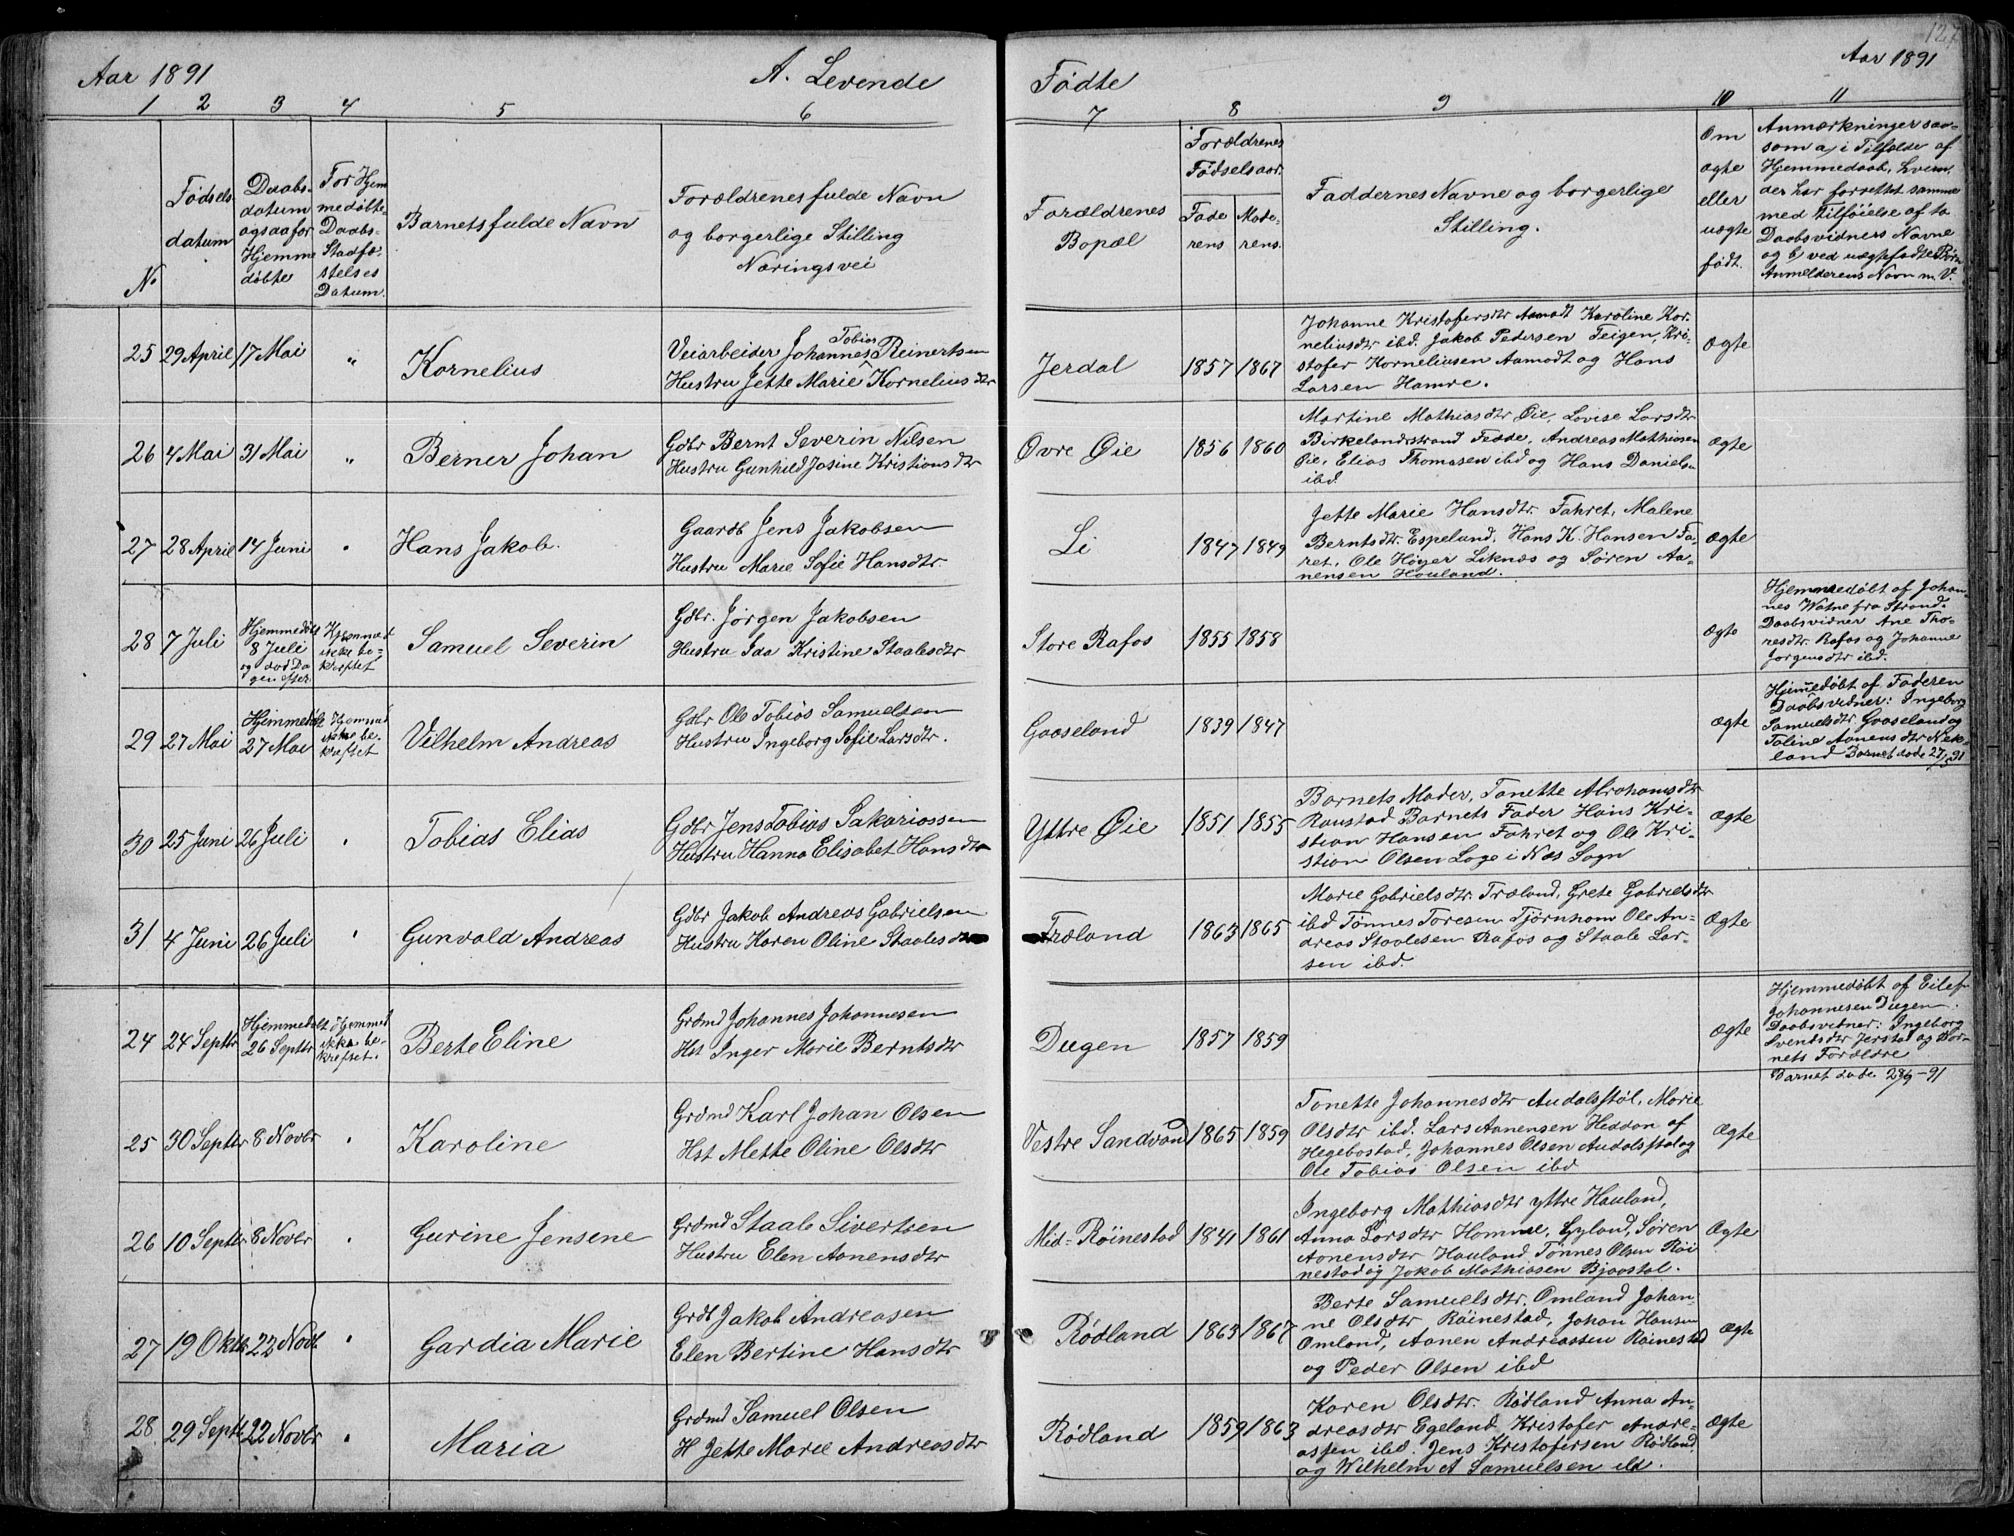 127
Aar 1891
A. Levende
Fødte
Aar 1891
1 2 3 4 5 6 7 8 9 10 11
No
Fødsels-
datum
Daabs-
datum
ogsaa for
Hjemme
døbte
For Hjem
medøbte
Daabs-
Stadfæ-
stelses
Datum.
Barnets fulde Navn
Forældrenes fulde Navn
og borgerlige Stilling
Næringsvei
Forældrenes
Bopæl
Forældrenes
Fødselsaar.
Fade
rens
Mode-
rens.
Faddernes Navne og borgerlige
Stilling.
Om
ægte
eller
uægte
født.
Anmærkninger saa-
som a, i Tilfælde af
Hjemmedaab, hvem
der har forrettet samme
med Tilføielse af to
Daabsvidners Navne
og b, ved uægtefødte Børn
Anmelderens Navn m. V.
25 29 April 17 Mai " Kornelius
Tobias
Veiarbeider Johannes Reinertsen
Hustru Jette Marie Kornelius dtr
Jerdal 1857 1867
Johanne Kristofersdtr Aamodt Karoline Kor-
neliusdtr ibd. Jakob Pedersen Teigen, Kri-
stofer Korneliusen Aamodt og Hans
Larsen Hamre.
Ægte
26 4 Mai 31 Mai " Berner Johan
Gdbr Bernt Severin Nilsen
Hustru Gunhild Josine Kristiansdtr
Øvre Øie 1856 1860
Martine Mathiasdtr Øie, Lovise Larsdtr
Birkelandsstrand Fede, Andreas Mathiasen
Øie, Elias Thomasen ibd og Hans Danielsn
ibd.
Ægte
27 28 April 14 Juni " Hans Jakob.
Gaardb Jens Jakobsen
Hustru Marie Sofie Hansdtr.
Li 1847 1849
Jette Marie Hansdtr. Fahret, Malene
Berntsdtr. Espeland, Hans K. Hansen Fa-
ret. Ole Høyer Liknæs og Søren Aa-
nensen Houland.
Ægte
28 7 Juli
Hjemmedøbt
8 Juli
og død Da
gen efter
Hjemmed
ikke be-
kræftet
Samuel Severin
Gdbr. Jørgen Jakobsen
Hustru Ida Kristine Staalesdtr
Store Rafos 1855 1858
Ægte
Hjemmedøbt af Johan
nes Watne fra Strand.
Daabsvidner Ane Tho-
resdtr. Rafos og Johanne
Jørgensdtr ibd.
29 27 Mai
Hjemmedøbt
27 Mai
Hjemmed
ikke be-
kræftet
Vilhelm Andreas
Gdbr Ole Tobias Samuelsen
Hustru Ingeborg Sofie Larsdtr.
Gaaseland 1839 1847
Ægte
Hjem̄edøbt af Faderen
Daabsvidner: Ingeborg
Samuelsdtr Gaaseland og
Toline Aanensdtr Nek-
land Barnet døde 27/5 91
30 25 Juni 26 Juli " Tobias Elias
Gdbr Jens Tobias Sakariassen
Hustru Hanna Elisabet Hansdtr
Yttre Øie 1851 1855
Barnets Moder, Tonette Abrahamsdtr
Raustad Barnets Fader Hans Kri-
stian Hansen Fahret og Ole Kri-
stian Olsen Loge i Næs Sogn
Ægte
31 4 Juni 26 Juli " Gunvald Andreas
Gdbr Jakob Andreas Gabrielsen
Hustru Karen Oline Staalesdtr
Træland 1863 1865
Marie Gabrielsdtr. Træland, Grete Gabrielsdtr
ibd Tønnes Toresen Tjørnhom Ole An-
dreas Staalesen Rafos og Staale Lar-
sen ibd.
Ægte
24 24 Septbr
Hjemmedøbt
26 Septbr
Hjemmed
ikke be-
kræftet.
Berte Eline
Grdmd Johannes Johannesen
Hst Inger Marie Berntsdtr
Dugen 1857 1859
Ægte
Hjemmedøbt af Eilef
Johannesen Dugen.
Daabsvidner: Ingeborg
Svendsdtr Jerstad og Bar-
nets Forældre
Barnet døde 28/9-91
25 30 Septbr 8 Novbr " Karoline
Grdmd Karl Johan Olsen
Hst Mette Oline Olsdtr
Vestre Sandvand 1865 1859
Tonette Johannesdtr Audalsstøl, Marie
Olsdtr ibd. Lars Aanensen Heddan af
Hegebostad, Johannes Olsen Audalsstøl og
Ole Tobias Olsen ibd
Ægte
26 10 Septbr 8 Novbr " Gurine Jensene
Grdmd Staale Sivertsen
Hustru Elen Aanensdtr
Mid-Røinestad 1841 1861
Ingeborg Mathiasdtr yttre Hauland,
Anna Larsdtr Homme, Gyland, Søren
Aanensdtr Hauland Tønnes Olsen Røi
nestad og Jakob Mathiasen Bjaastal.
Ægte
27 19 Oktbr 22 Novb. " Gardia Marie
Grdb Jakob Andreasen
Elen Bertine Hansdtr
Rødland 1863 1867
Berte Samuelsdtr. Omland Johan-
ne Olsdtr Røinestad, Johan Hansen
Omland, Aanen Andreassen Røinestad
og Peder Olsen ibd
Ægte
28 29 Septb 22 Novbr " Maria
Grdmd Samuel Olsen
H Jette Marie Andreasdtr
Rødland 1859 1863
Karen Olsdtr. Rødland Anna An-
dreasdtr Egeland, Kristofer Andre-
assen ibd. Jens Kristofersen Rødland
og Wilhelm A Samuelsen ibd.
Ægte